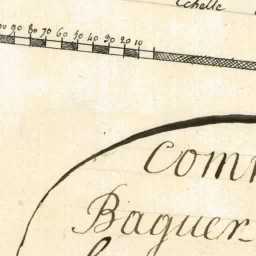 Echelle
90 80 70 60 50 40 30 20 10
Com
Baguer-